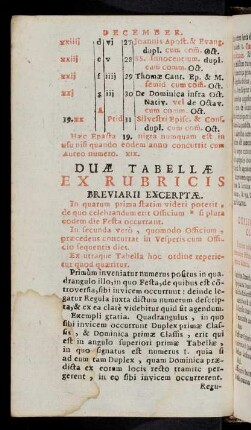 DECEMBER.
xxiiij d vj 27 Joannis Apost. & Evang.
dupl. cum com. Oct.
xxiij e v 28 SS. Innocentum. dupl.
cum comm. Oct.
xxij f iiij 29 Thomæ Cant. Ep. & M.
semid cum com. Oct.
xxj g iij 30 De Dominica infra Oct.
Nativ. vel de Octav.
cum comm. Oct.
19.xx A Prid 31 Silvestri Episc. & Conf.
dupl. cum com. Oct.
Hæc Epacta 19. nigra nunquam est in
usu nisi quando eodem anno concurrit cum
Aureo numero. XIX.
DUÆ TABELLÆ
EX RUBRICIS
BREVIARII EXCERPTÆ.
In quarum prima statim videri poterit,
de quo celebrandum erit Officium si plura
eodem die Festa occurrant.
In secunda verò, quomodo Officium,
præcedens concurrat in Vesperis cum Offi-
cio sequentis diei.
Ex utraque Tabella hoc ordine reperie-
tur quod quæritur.
Primùm inveniatur numerus positus in qua-
drangulo illo, in quo Festa, de quibus est cō-
troversia, sibi invicem occurrunt: deinde le-
gatur Regula juxta dictum numerum descrip-
ta, & ex ea clarè videbitur quid sit agendum.
Exempli gratia. Quadrangulus, in quo
sibi invicem occurrunt Duplex primæ Clas-
sis, & Dominica primæ Classis, erit qui
est in angulo superiori primæ Tabellæ,
in quo signatus est numerus 1. quia si
di cum tam Duplex, quam Dominica præ-
dicta ex eorum locis recto tramite per-
gerent, in eo sibi invicem occurrerent.
Regu-